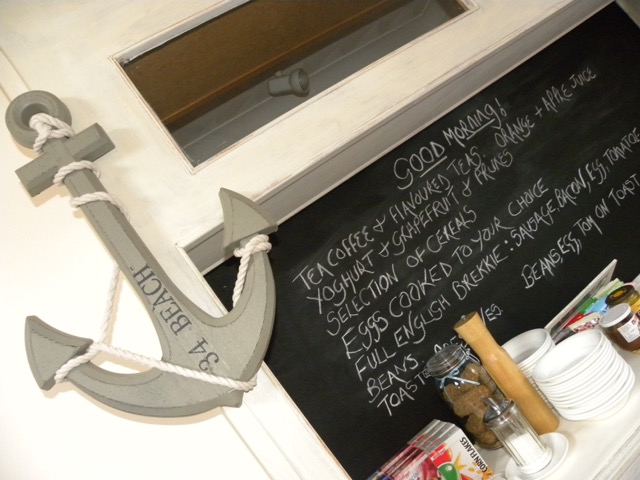 GOOD MORNING!
TEA COFFEE & FLAVOURED TEAS. ORANGE + APPLE JUICE
YOGHURT & GRAPEFRUIT & PRUNES
SELECTION OF CEREALS
EGGS COOKED TO YOUR CHOICE
FULL ENGLISH BREKKIE: SAUSAGE, BACON, EGG, TOMATOE
BEANS
BEANS, EGG, TOM ON TOAST
TOAST
34 BEACH
CORN FLAKES